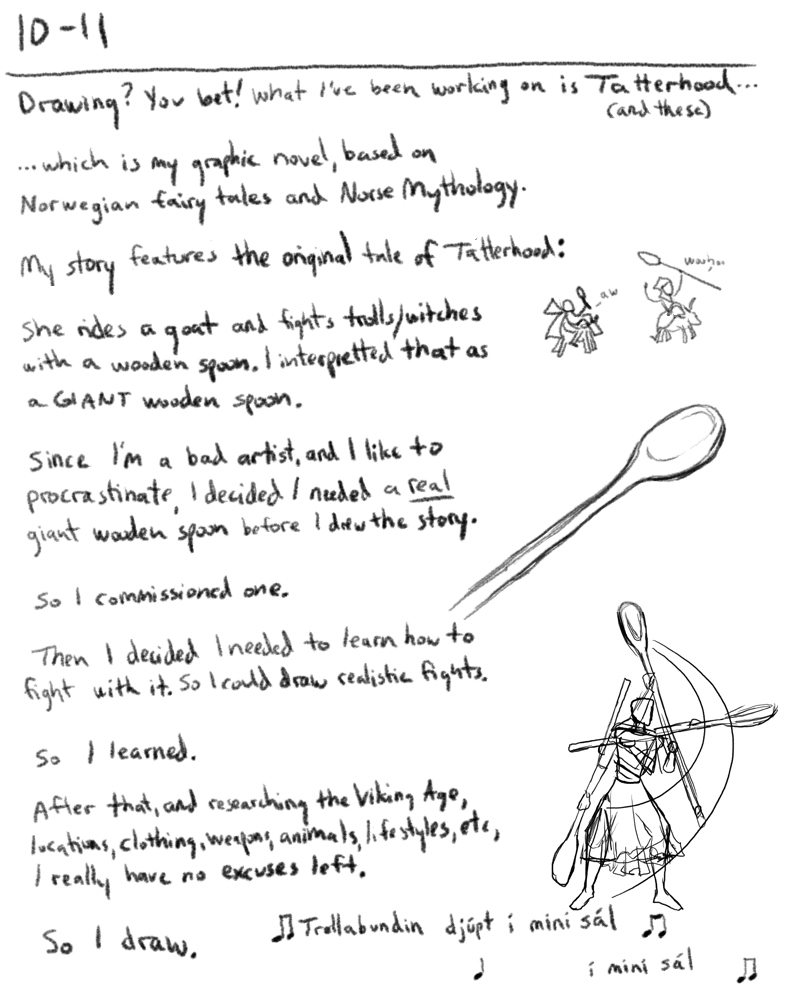 10-11
Drawing? You bet! What I've been working on is Tatterhood...
(and these)
...which is my graphic novel, based on
Norwegian fairy tales and Norse Mythology.
My story features the original tale of Tatterhood:
She rides a goat and fights trolls/witches
with a wooden spoon. I interpretted that as
a GIANT wooden spoon.
aw
Since I'm a bad artist, and I like to
procrastinate, I decided I needed a real
giant wooden spoon before I drew the story.
So I commissioned one.
Then I decided I needed to learn how to
fight with it. So I could draw realistic fights.
So I learned.
After that, and researching the Viking Age,
locations, clothing, weapons, animals, lifestyles, etc,
I really have no excuses left.
So I draw.
♫ Trollabundin djúpt í míni sál ♫
♩ í míni sál ♫